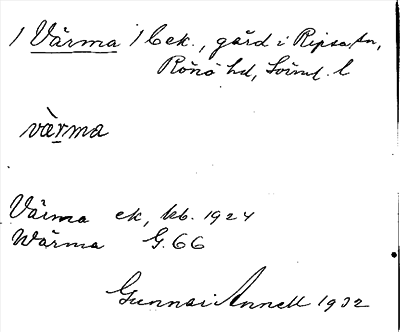 / Värma / 1 bek., gård i Ripsa sn,
Rönö hd, Söml. l
värma
Värma ek, kb. 1924
Wärma G. 66
Gunnar Annell 1932